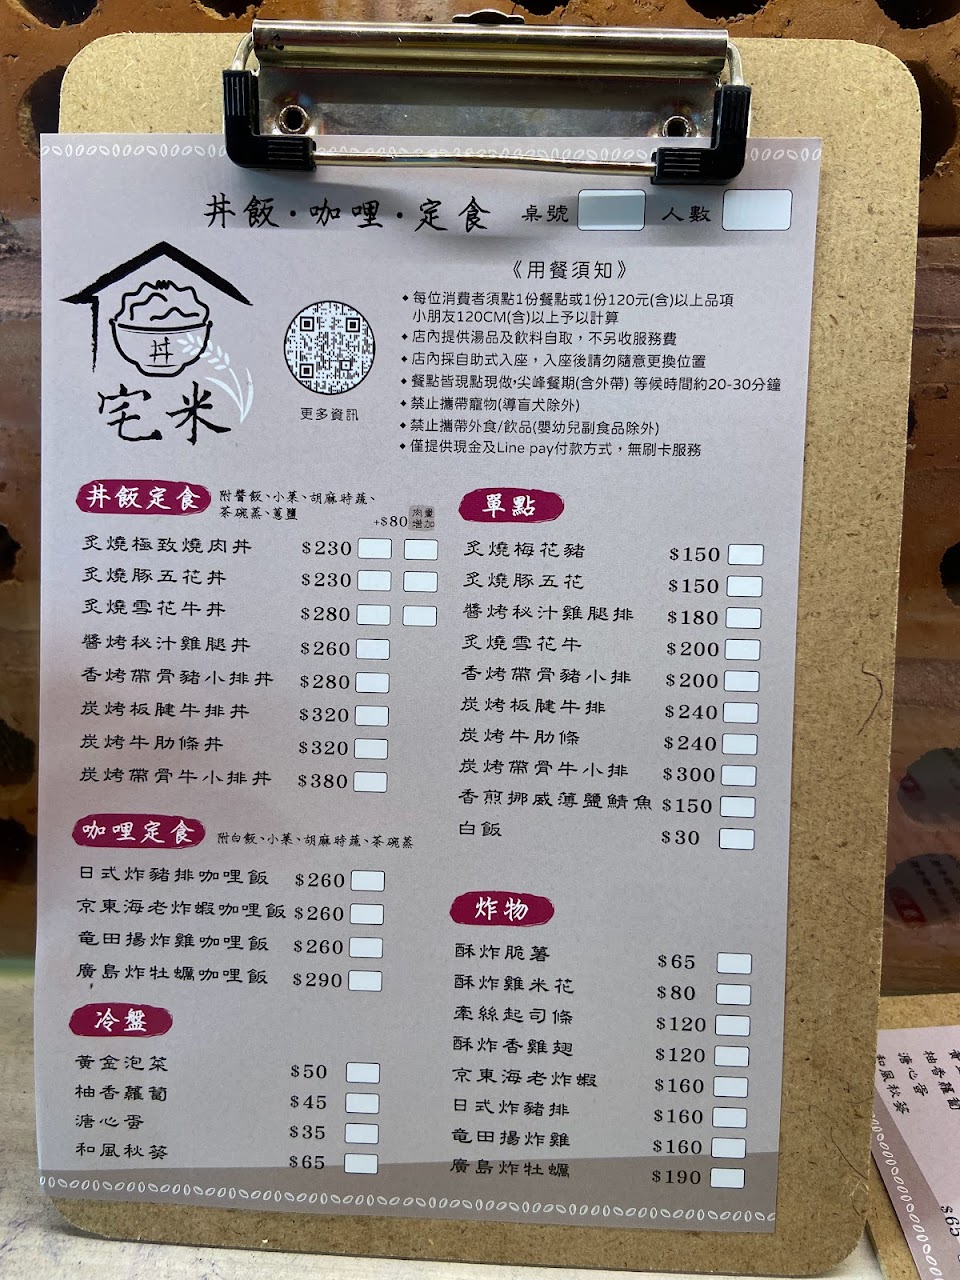 丼飯·咖哩·定食 桌號 人數
丼
宅米
更多資訊
《用餐須知》
◆每位消費者須點1份餐點或1份120元(含)以上品項
小朋友120CM(含)以上予以計算
◆店內提供湯品及飲料自取，不另收服務費
◆店內採自助式入座，入座後請勿隨意更換位置
◆餐點皆現點現做，尖峰餐期(含外帶) 等候時間約20-30分鐘
◆禁止攜帶寵物(導盲犬除外)
◆禁止攜帶外食/飲品(嬰幼兒副食品除外)
◆僅提供現金及Line pay付款方式，無刷卡服務
丼飯定食 附醬飯、小菜、胡麻時蔬、
茶碗蒸、蔥鹽
+$80 肉量增加
炙燒極致燒肉丼 $230
炙燒豚五花丼 $230
炙燒雪花牛丼 $280
醬烤秘汁雞腿丼 $260
香烤帶骨豬小排丼 $280
炭烤板腱牛排丼 $320
炭烤牛肋條丼 $320
炭烤帶骨牛小排丼 $380
咖哩定食 附白飯、小菜、胡麻時蔬、茶碗蒸
日式炸豬排咖哩飯 $260
京東海老炸蝦咖哩飯 $260
竜田揚炸雞咖哩飯 $260
廣島炸牡蠣咖哩飯 $290
冷盤
黃金泡菜 $50
柚香蘿蔔 $45
溏心蛋 $35
和風秋葵 $65
單點
炙燒梅花豬 $150
炙燒豚五花 $150
醬烤秘汁雞腿排 $180
炙燒雪花牛 $200
香烤帶骨豬小排 $200
炭烤板腱牛排 $240
炭烤牛肋條 $240
炭烤帶骨牛小排 $300
香煎挪威薄鹽鯖魚 $150
白飯 $30
炸物
酥炸脆薯 $65
酥炸雞米花 $80
牽絲起司條 $120
酥炸香雞翅 $120
京東海老炸蝦 $160
日式炸豬排 $160
竜田揚炸雞 $160
廣島炸牡蠣 $190
柚香蘿蔔
溏心蛋
和風秋葵
$65